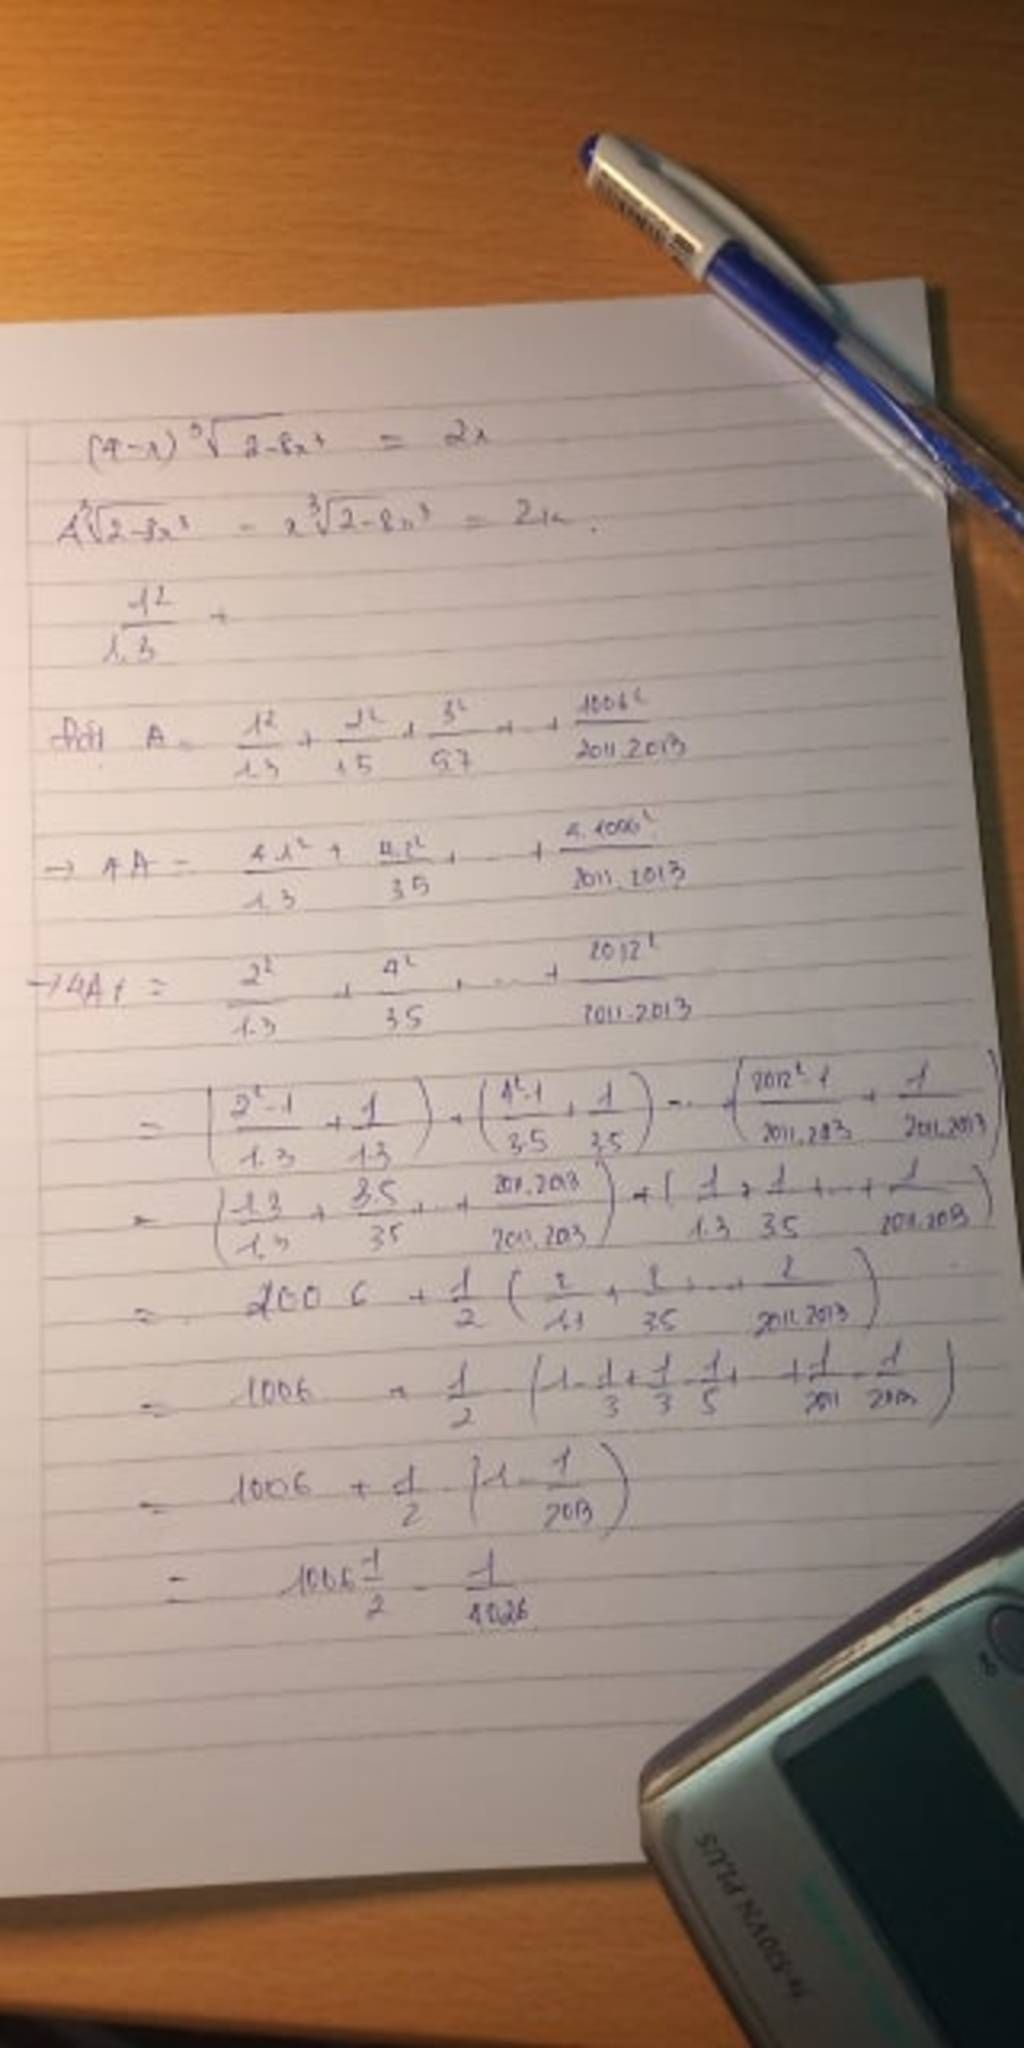 (4-x) ³√2-8x³ = 2x
4³√2-8x³ - x³√2-8x³ = 2x.
1²/1.3 +
Đặt A = 1²/1.3 + 2²/3.5 + 3²/5.7 + ... + 1006²/2011.2013
→ 4A = 4.1²/1.3 + 4.2²/3.5 + ... + 4.1006²/2011.2013
→ 4A = 2²/1.3 + 4²/3.5 + ... + 2012²/2011.2013
= (2²-1/1.3 + 1/1.3) + (4²-1/3.5 + 1/3.5) ... + (2012²-1/2011.2013 + 1/2011.2013)
= (1.3/1.3 + 3.5/3.5 + ... + 2011.2013/2011.2013) + (1/1.3 + 1/3.5 + ... + 1/2011.2013)
= 1006 + 1/2 (2/1.3 + 2/3.5 + ... + 2/2011.2013)
= 1006 + 1/2 (1 - 1/3 + 1/3 - 1/5 + ... + 1/2011 - 1/2013)
= 1006 + 1/2 (1 - 1/2013)
= 1006 1/2 - 1/4026
fx-570VN PLUS